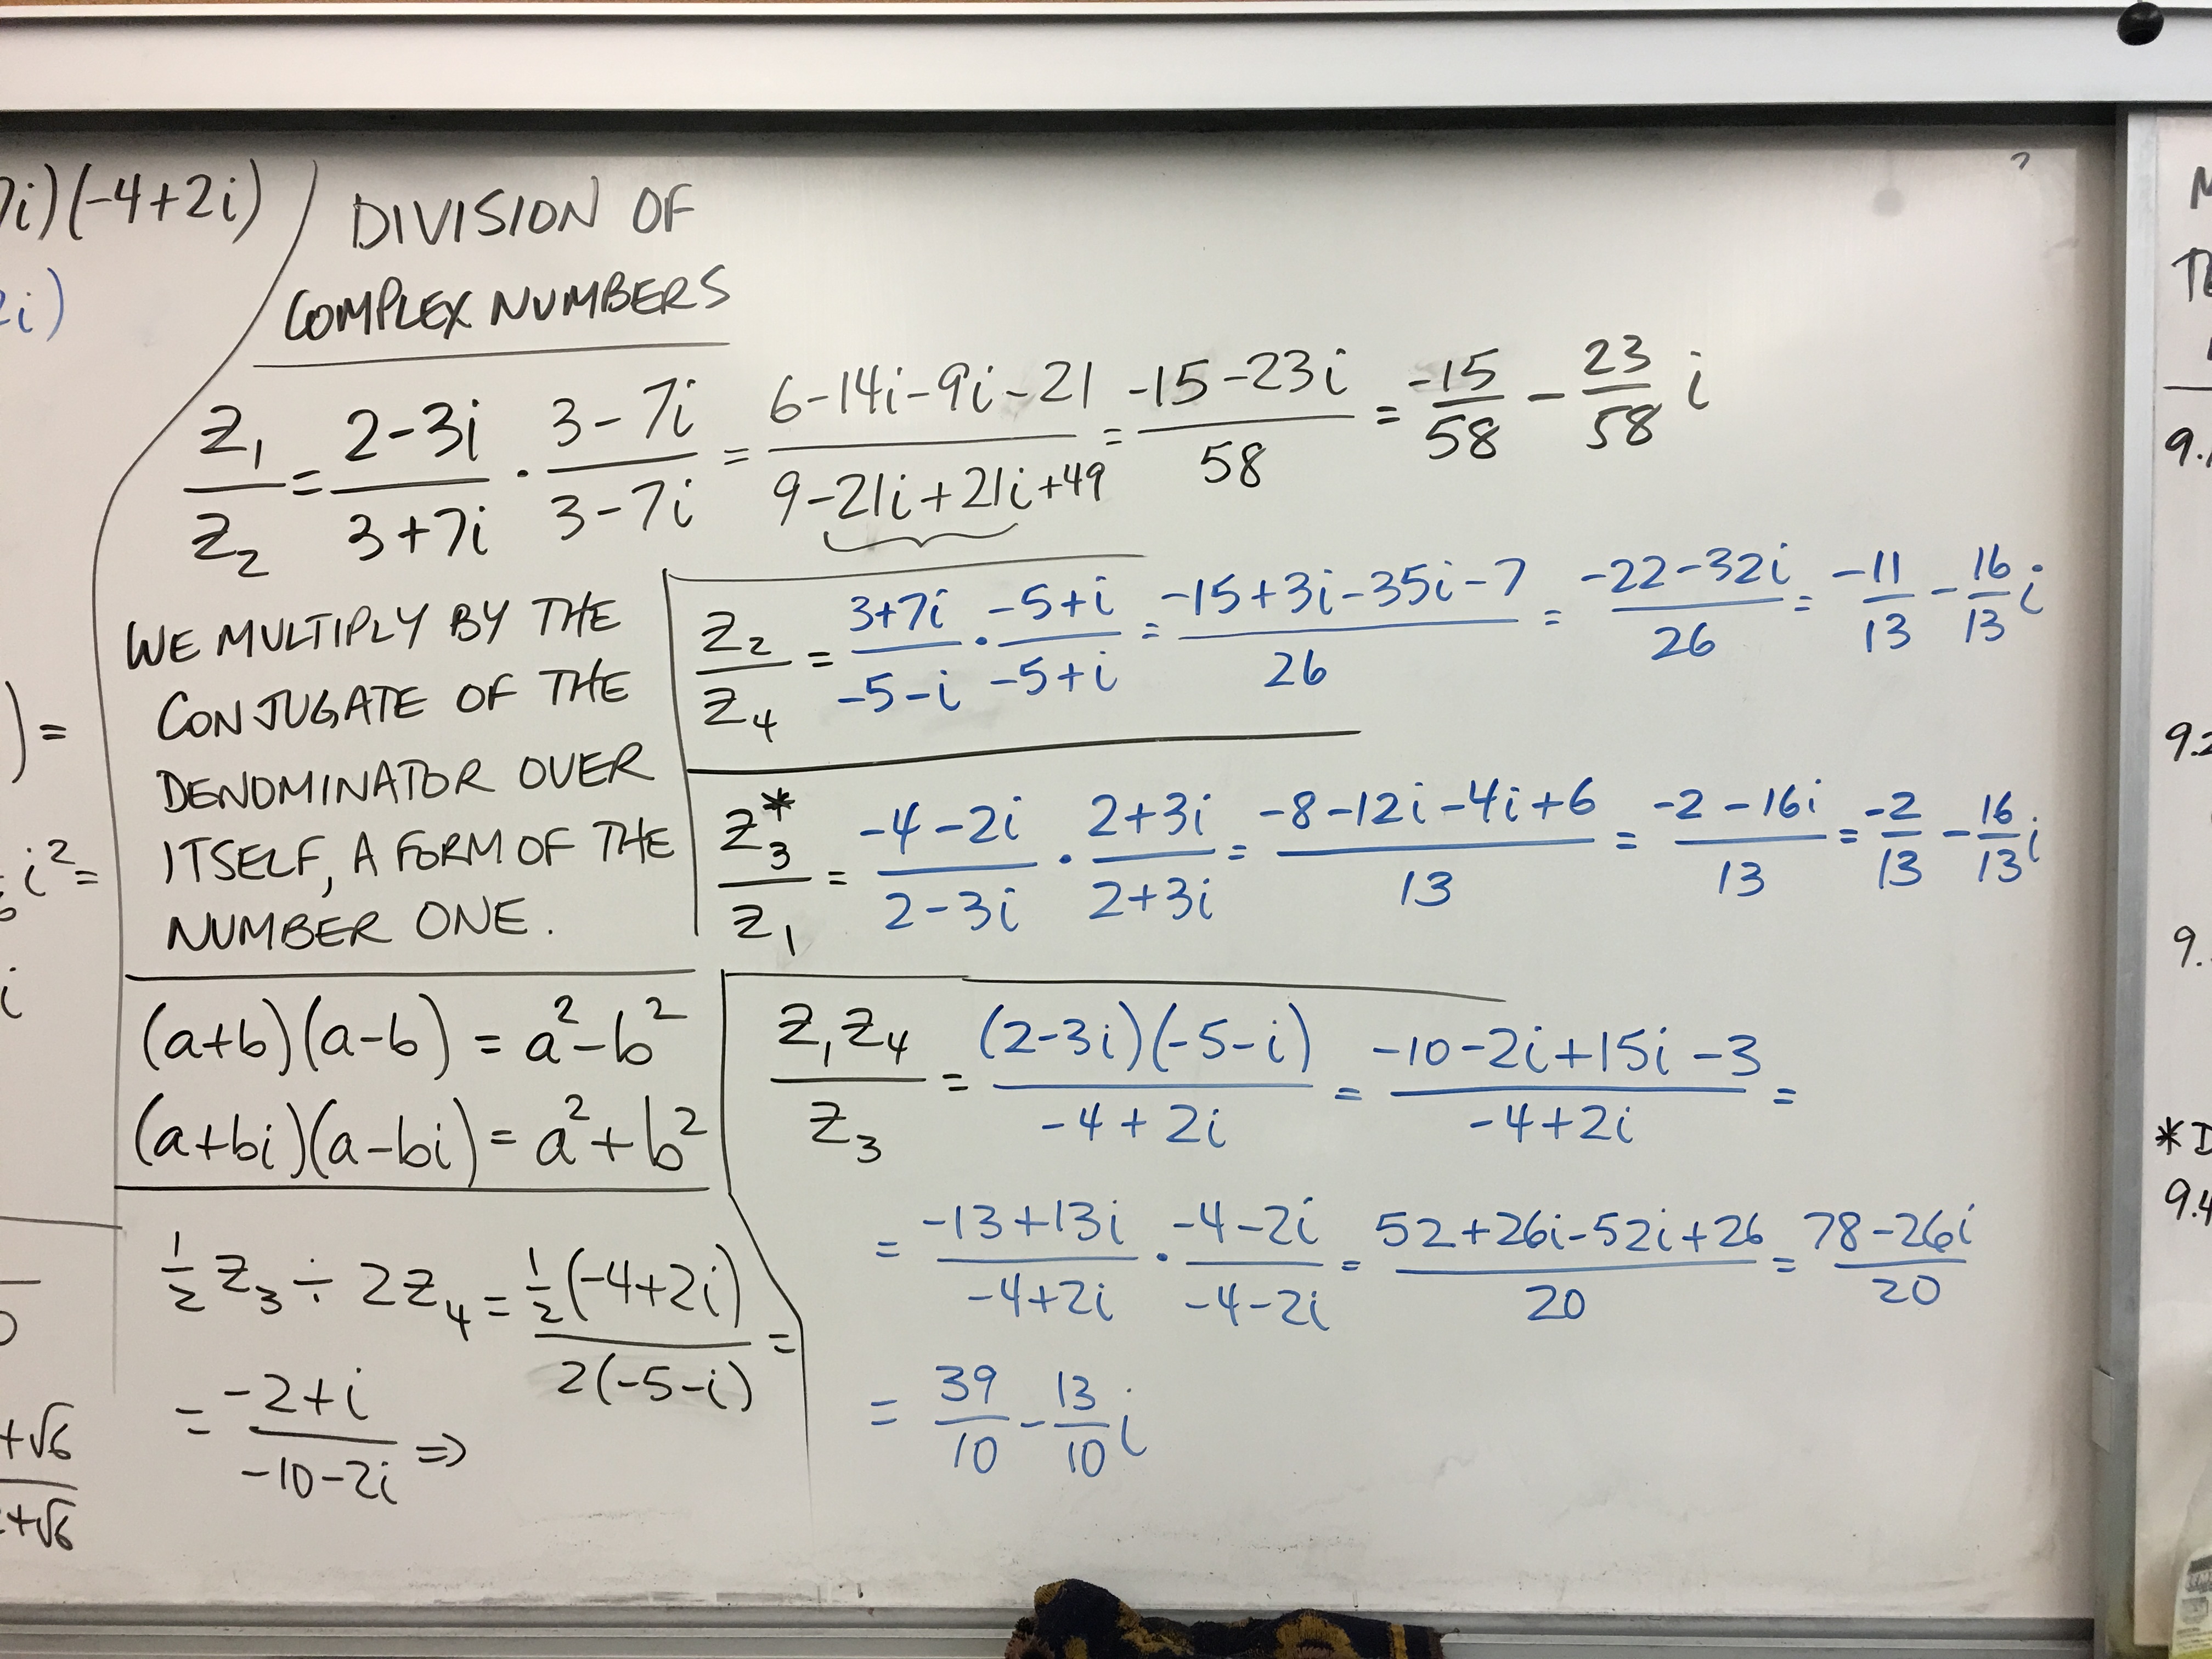 7i)(-4+2i)
2i)
)=
i²=
i
+√6
+√6
DIVISION OF
COMPLEX NUMBERS
z₁/z₂ = (2-3i)/(3+7i) · (3-7i)/(3-7i) = (6-14i-9i-21)/(9-21i+21i+49) = (-15-23i)/58 = -15/58 - 23/58 i
WE MULTIPLY BY THE
CONJUGATE OF THE
DENOMINATOR OVER
ITSELF, A FORM OF THE
NUMBER ONE.
z₂/z₄ = (3+7i)/(-5-i) · (-5+i)/(-5+i) = (-15+3i-35i-7)/26 = (-22-32i)/26 = -11/13 - 16/13 i
z₃*/z₁ = (-4-2i)/(2-3i) · (2+3i)/(2+3i) = (-8-12i-4i+6)/13 = (-2-16i)/13 = -2/13 - 16/13 i
(a+b)(a-b) = a²-b²
(a+bi)(a-bi) = a²+b²
½ z₃ ÷ 2z₄ = ½(-4+2i)/2(-5-i) =
= (-2+i)/(-10-2i) ⇒
z₁z₄/z₃ = (2-3i)(-5-i)/(-4+2i) = (-10-2i+15i-3)/(-4+2i) =
= (-13+13i)/(-4+2i) · (-4-2i)/(-4-2i) = (52+26i-52i+26)/20 = (78-26i)/20
= 39/10 - 13/10 i
9.
9.2
9.
*
9.4